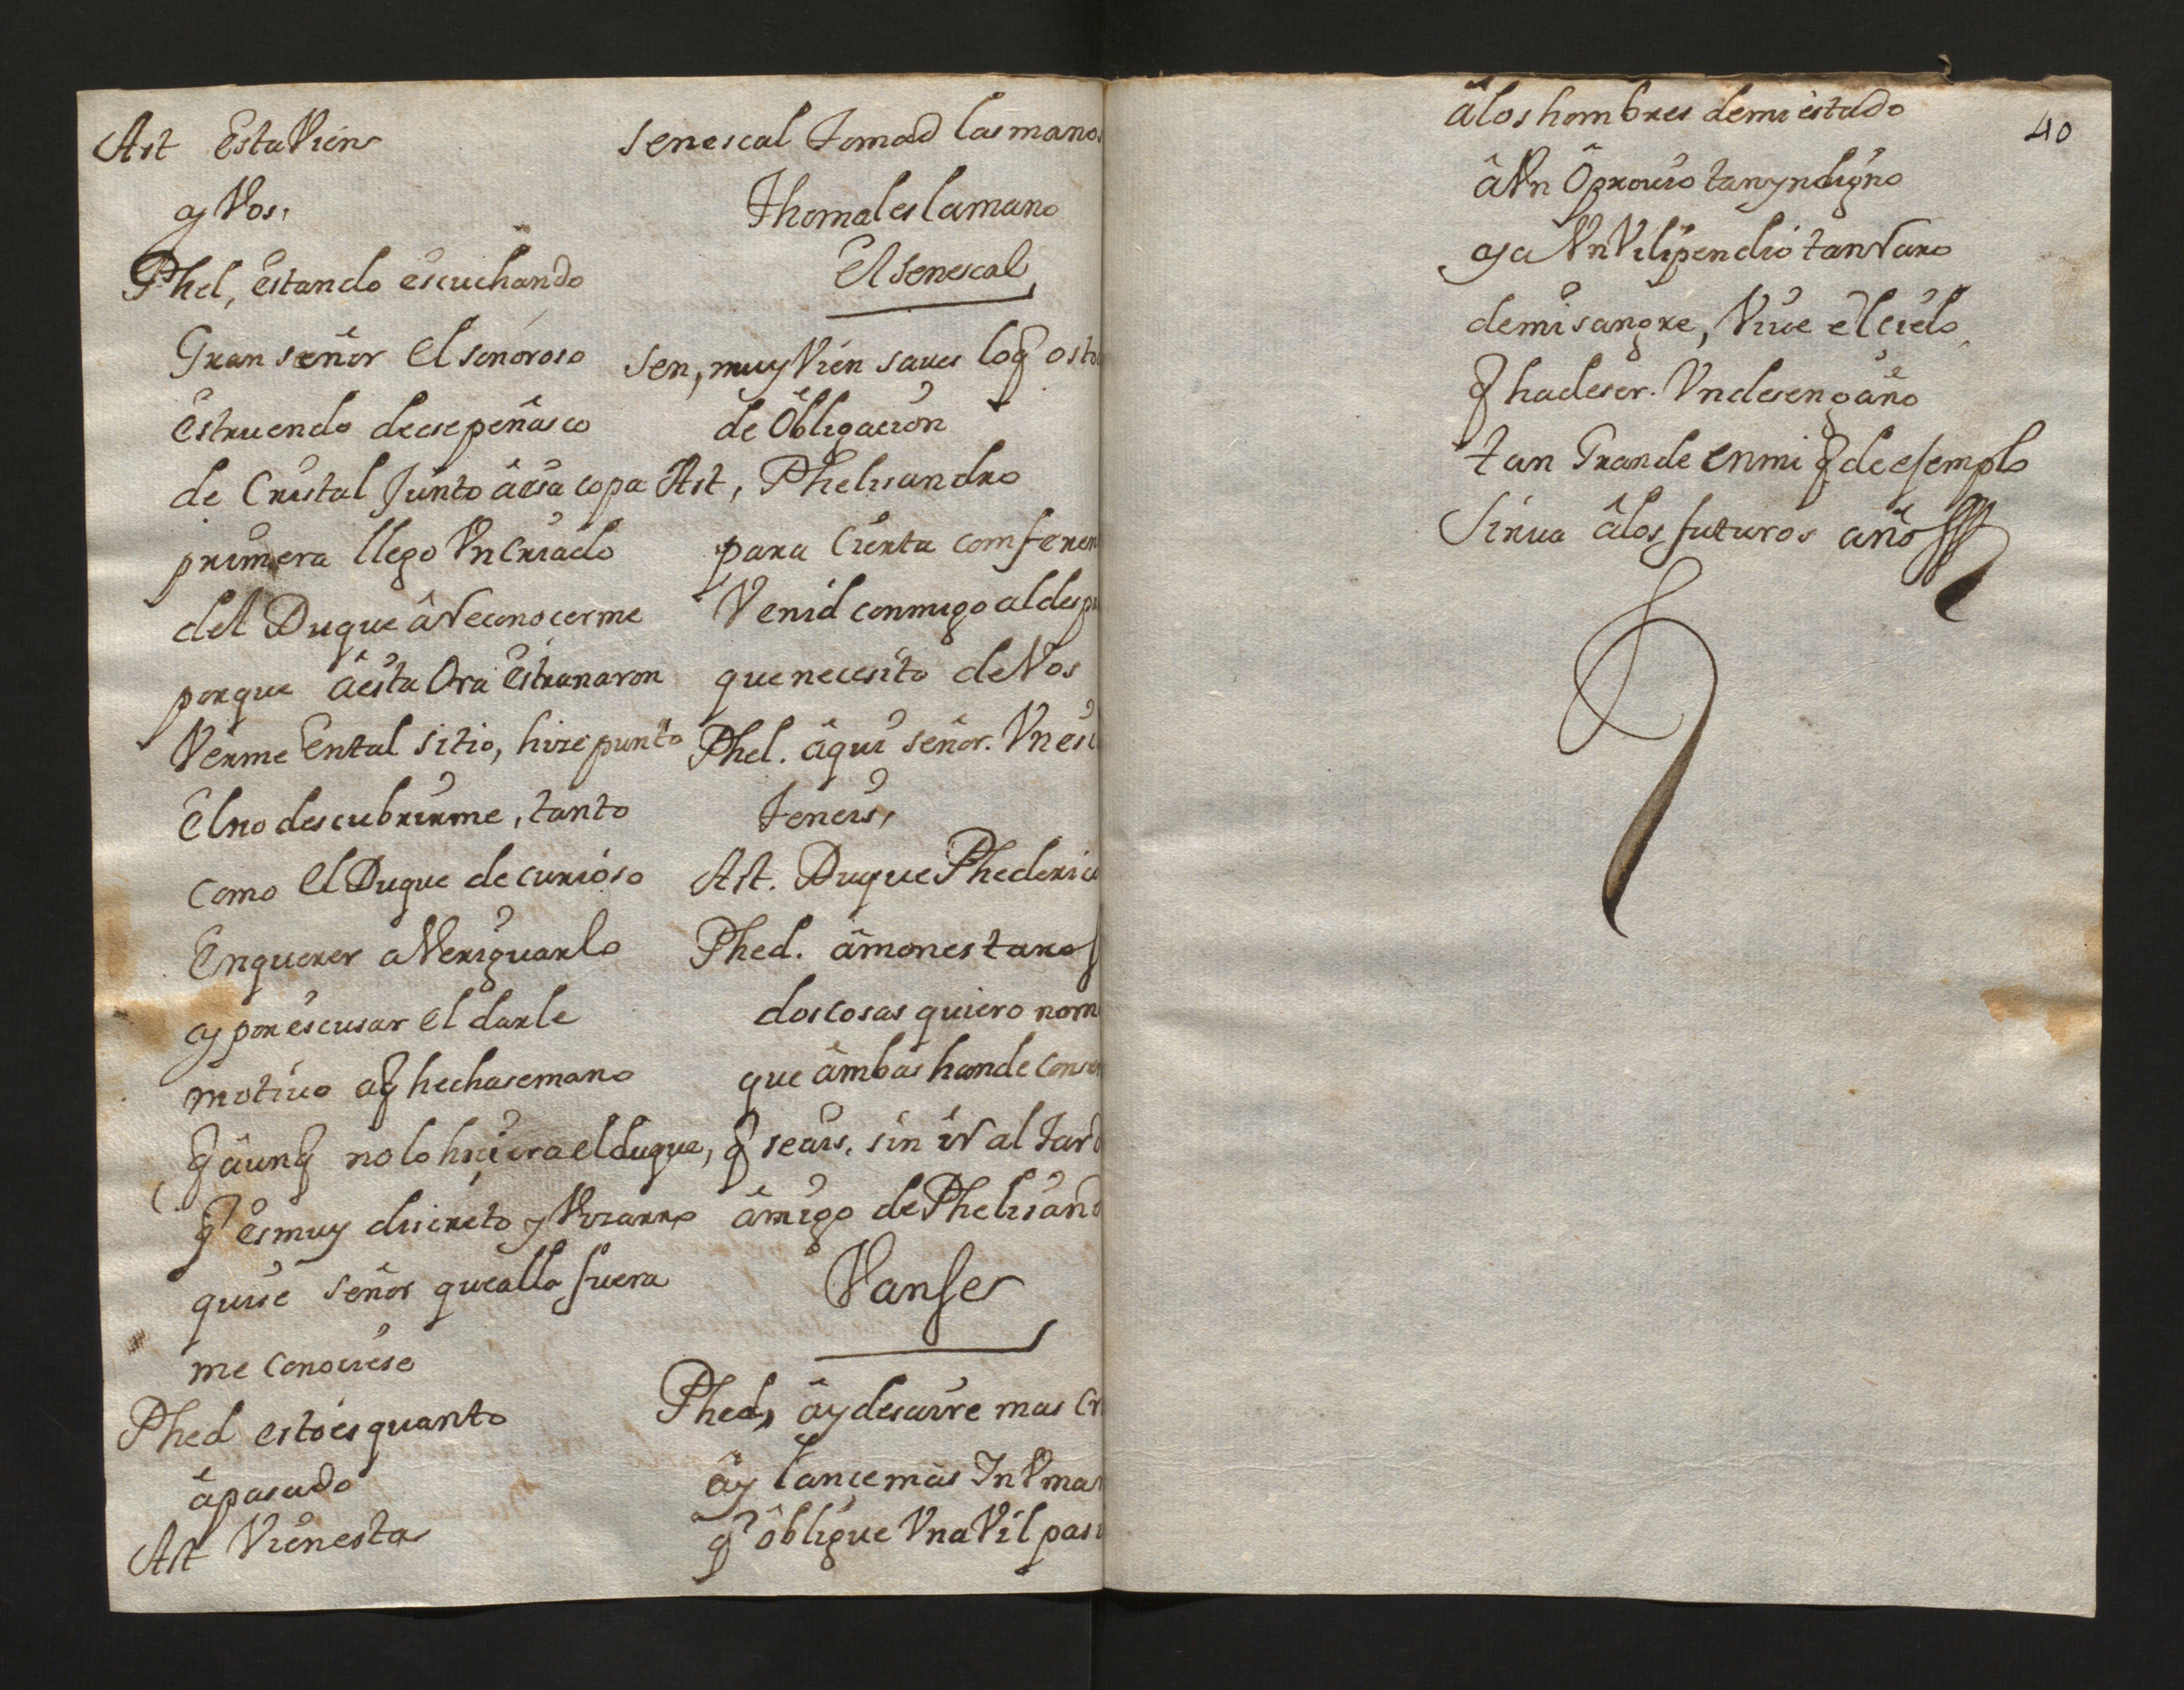 Ast Esta Vien
y Vos,
Phel, estando escuchando
Gran señor el sonoroso
estruendo de ese peñasco
de Cristal Junto â esa copa
primera llego Vn criado
del Duque â Reconocerme
porque â esta Ora estranaron
Verme En tal sitio, hize punto
El no descubrirme, tanto
como el Duque de curioso
En querer aVeriguarlo
y por escusar el darle
motivo a q hechase mano
q âunq no lo hiciera el duque,
q es muy discreto y Vizarro
quise señor que alla fuera
me conociese
Phed esto es quanto
â pasado
Ast Vien esta
senescal Tomad las manos
Thomales la mano
El senescal
Sen, muy Vien saves lo q os
de Obligacion
Ast, Phelisandro
para Cierta
Venid conmigo al
que necesito de Vos
Phel. âqui señor. Vn
Teneis,
Ast. Duque
Phed. âmonestaros
dos cosas quiero
que âmbas han de
q seais, sin ir al
âmigo de
Vanse
Phed, ây desaire mas
ây lance mas
q oblique Vna Vil
â los hombres de mi estado
â Vn Oprovio tan yndigno
y a Vn Vilipendio tan Raro
de mi sangre, Vive el cielo
q ha de ser. Vn desengaño
tan Grande en mi q de ejemplo
Sirva â los futuros años
40